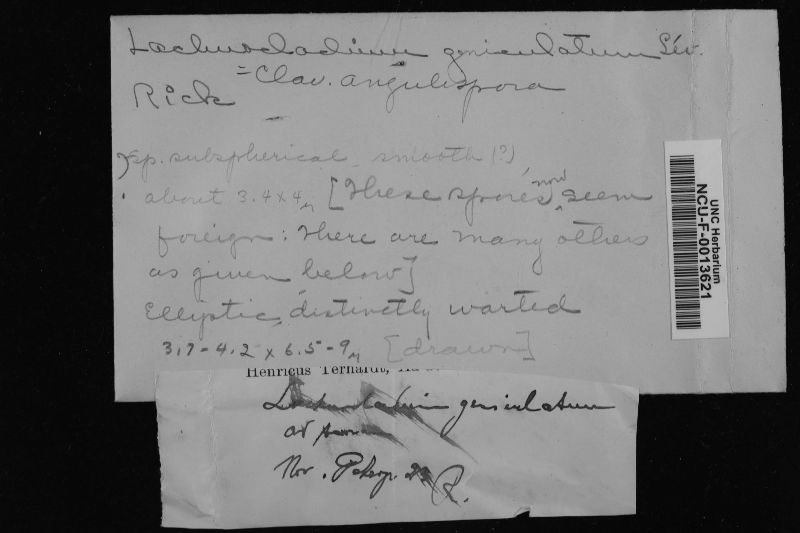 Lachnocladium geniculatum Lév.
= Clav. angulispora
Rick
Sp. subspherical, smooth (?)
about 3.4 x 4 µ [These spores now seem
foreign: there are many others
as given below]
Elliptic, distinctly warted
3.7-4.2 x 6.5-9 µ [drawn]
UNC Herbarium
NCU-F-0013621
Henricus
Lachnocladium geniculatum
Nov. R.